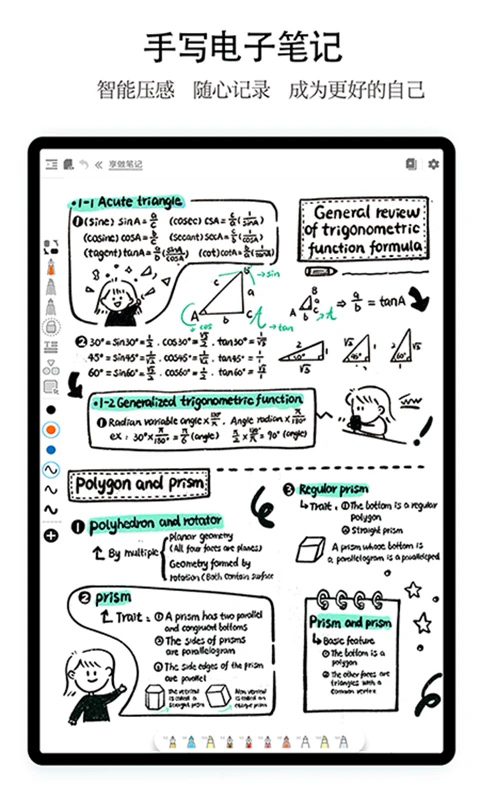 手写电子笔记
智能压感 随心记录 成为更好的自己
享做笔记
•1-1 Acute triangle
❶(sine) sinA=a/c (cosec) cscA=c/a(1/sinA)
(cosine) cosA=b/c (secant) secA=c/b(1/cosA)
(tagent) tanA=a/b(sinA/cosA) (cot) cotA=b/a(1/tanA)
General review
of trigonometric
function formula
B
c a
A b C
→sin
cos
→tan
B
c a
A b
⇒ a/b = tanA
❷ 30°=Sin30°=1/2 . cos30°=√3/2 . tan30°=1/√3
45°=sin45°=√2/2 . cos45°=1/√2 . tan45°=1/1
60°=sin60°=√3/2 . cos60°=1/2 . tan60°=√3/1
•1-2 Generalized trigonometric function
❶ Radian variable angle×180°/π. Angle radian×π/180°
ex: 30°×π/180°=π/6 (angle) π/2×180°/π=90° (angle)
Polygon and prism
❶ polyhedron and rotator
By multiple
planar geometry
(All four faces are planes)
Geometry formed by
rotation (Both contain surface
❸ Regular prism
Trait: ①The bottom is a regular
polygon
②Straight prism
A prism whose bottom is
a parallelogram is a parallelepiped
❷ prism
Trait: ①A prism has two parallel
and congruent bottoms
②The sides of prisms
are parallelogram
③The side edges of the prism
are parallel
The vertical
is called a
straight prism
Non vertical
is called an
oblique prism
Prism and prism
Basic feature
①The bottom is a
polygon
②The other faces are
triangles with a
common vertex